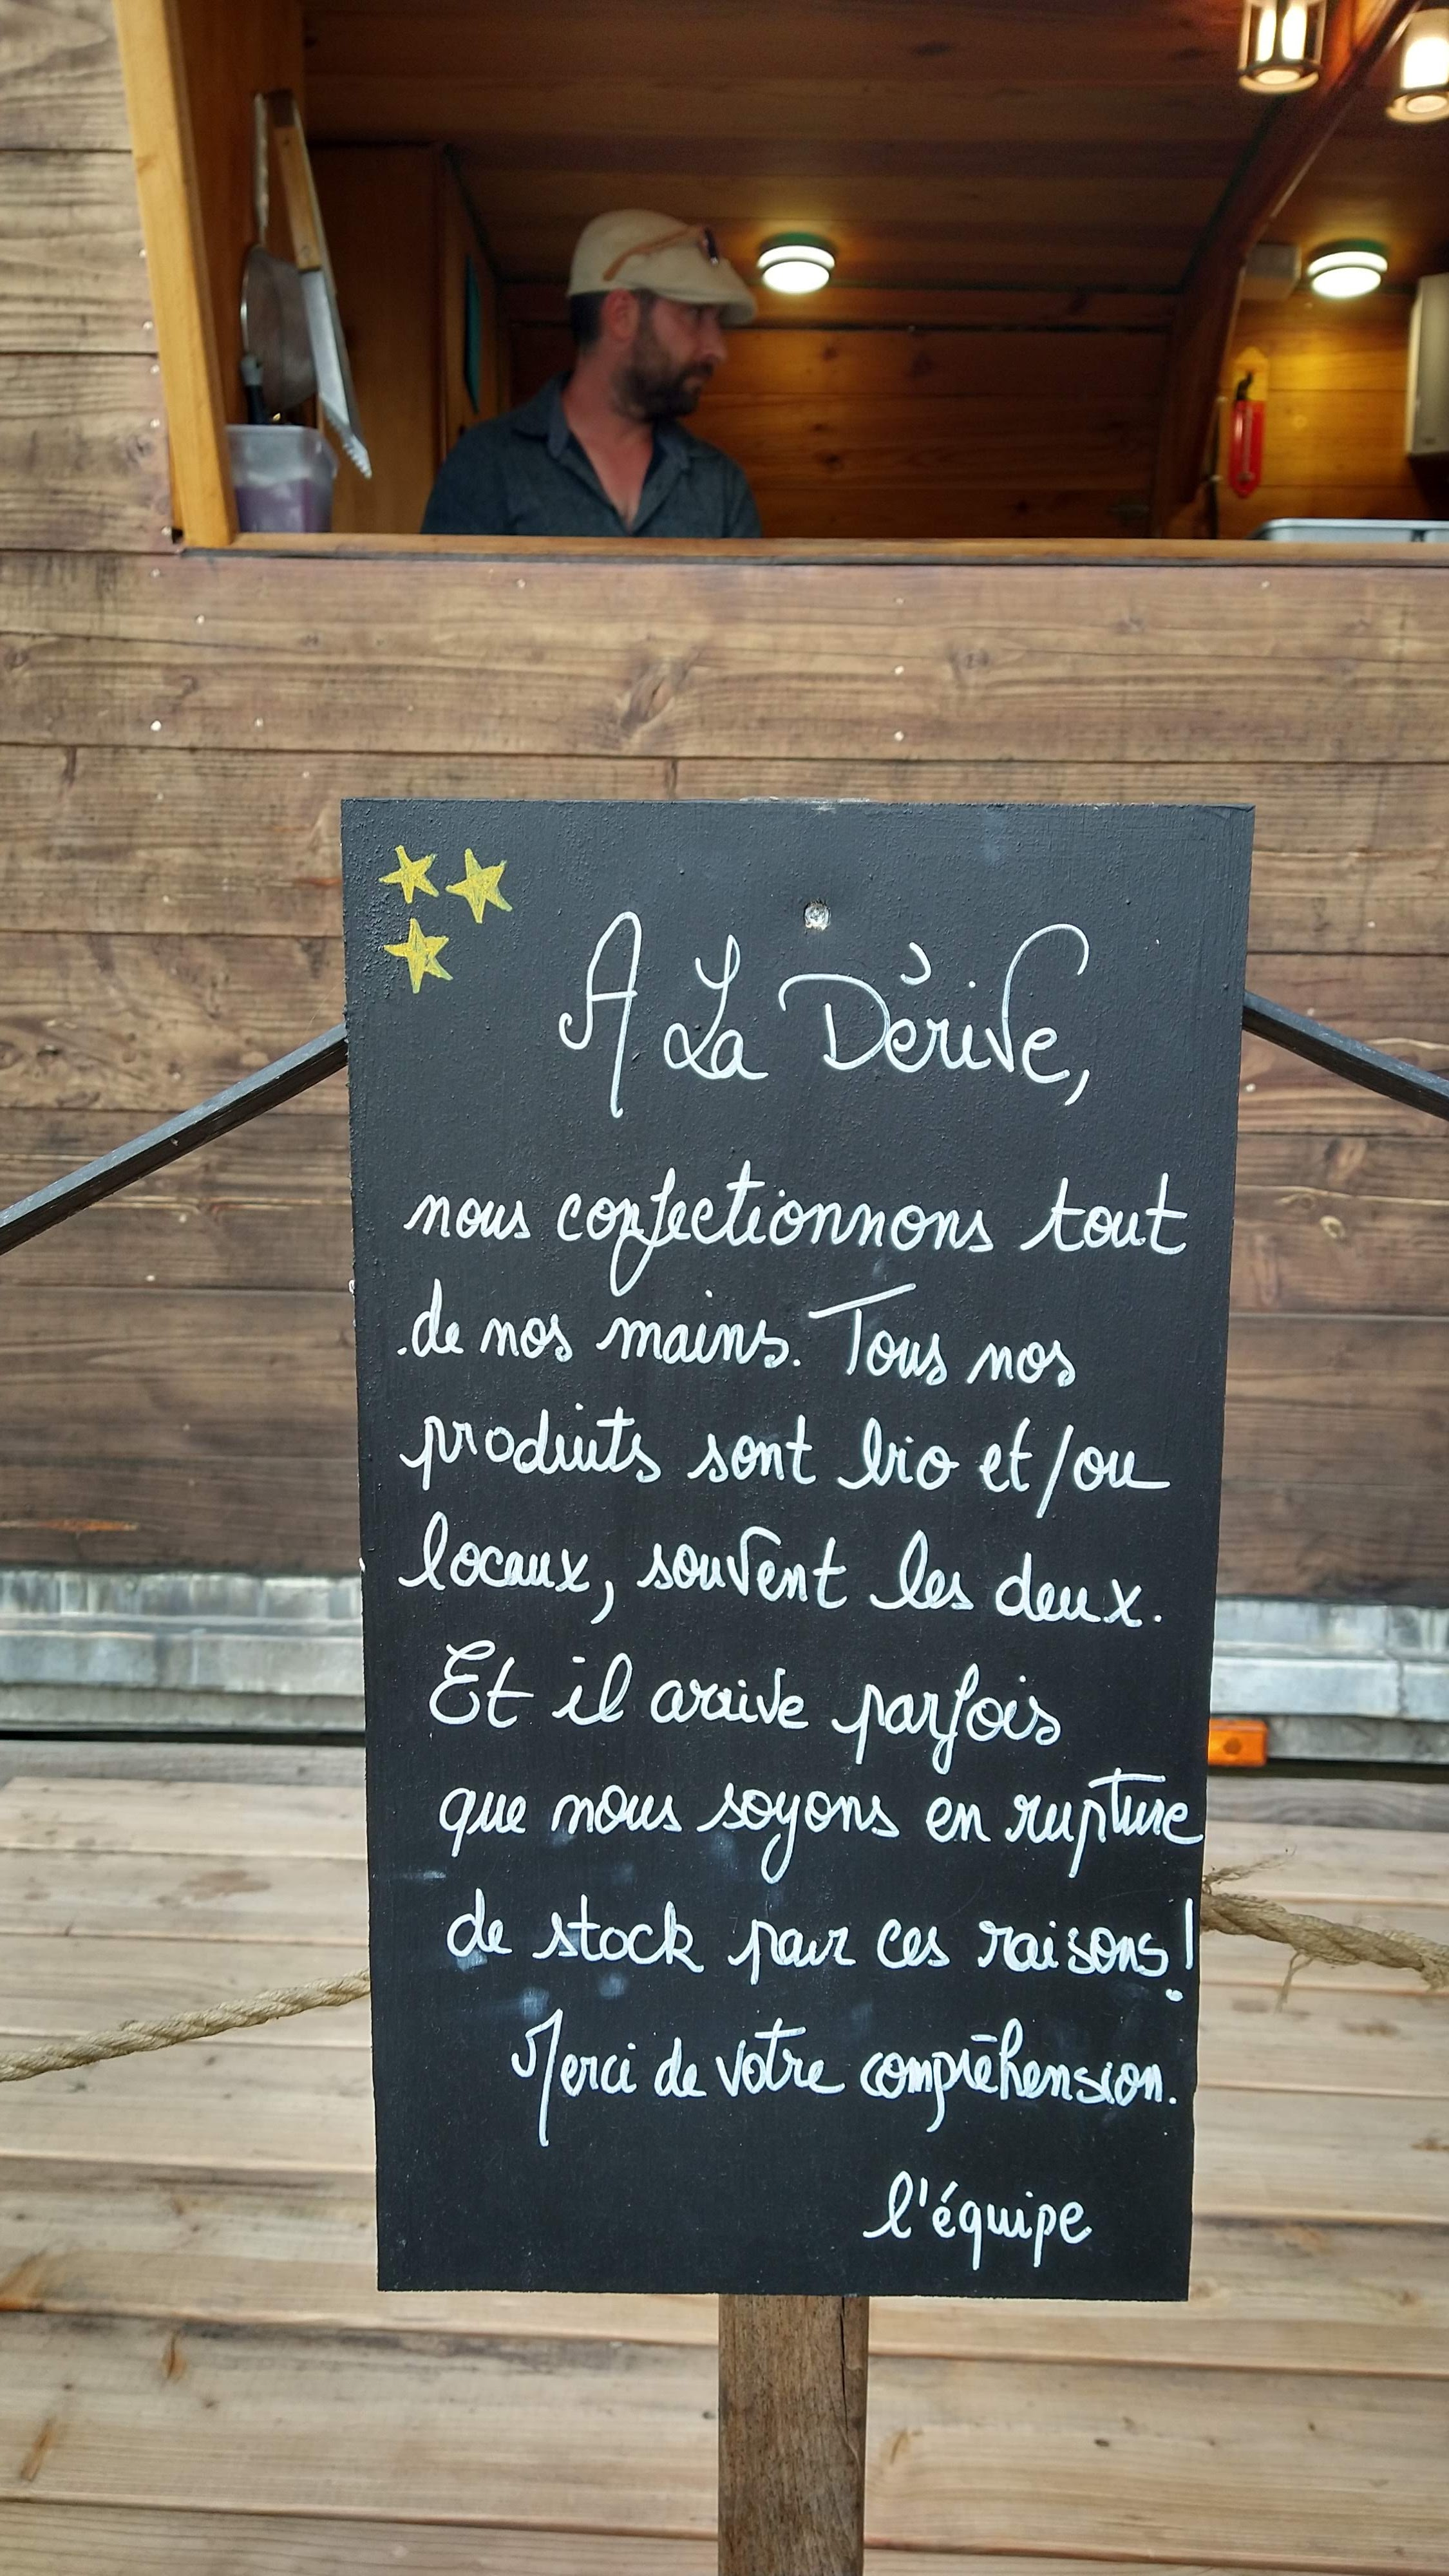 A La Dérive,
nous confectionnons tout
de nos mains. Tous nos
produits sont bio et/ou
locaux, souvent les deux.
Et il arrive parfois
que nous soyons en rupture
de stock pour ces raisons!
Merci de votre compréhension.
l'équipe